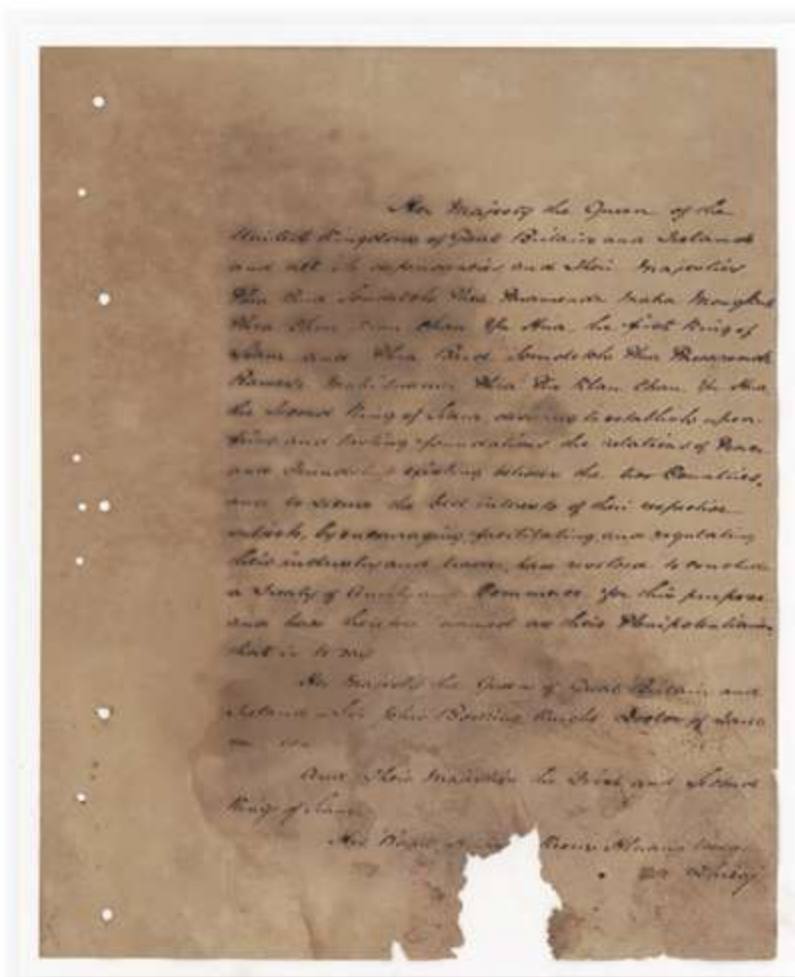 Her Majesty the Queen of the
United Kingdom of Great Britain and Ireland
and all its dependencies and Their Majesties
Phra Bard Somdetch Phra Paramendr Maha Mongkut
Phra Chom Klau Chau Yu Hua, the first King of
Siam and Phra Bard Somdetch Phra
Phra Pin Klau Chau Yu Hua
the Second King of Siam, desiring to establish upon
firm and lasting foundations the relations of Peace
and Friendship existing between the two Countries,
and to secure the best interests of their respective
subjects, by encouraging, facilitating, and regulating
their industry and trade, have resolved to conclude
a Treaty of Amity and Commerce for this purpose
and have therefore named as their Plenipotentiaries,
that is to say
Her Majesty the Queen of Great Britain and
Ireland, Sir John Bowring Knight Doctor of Laws
And Their Majesties the First and Second
Kings of Siam
His Royal Krom Hluang